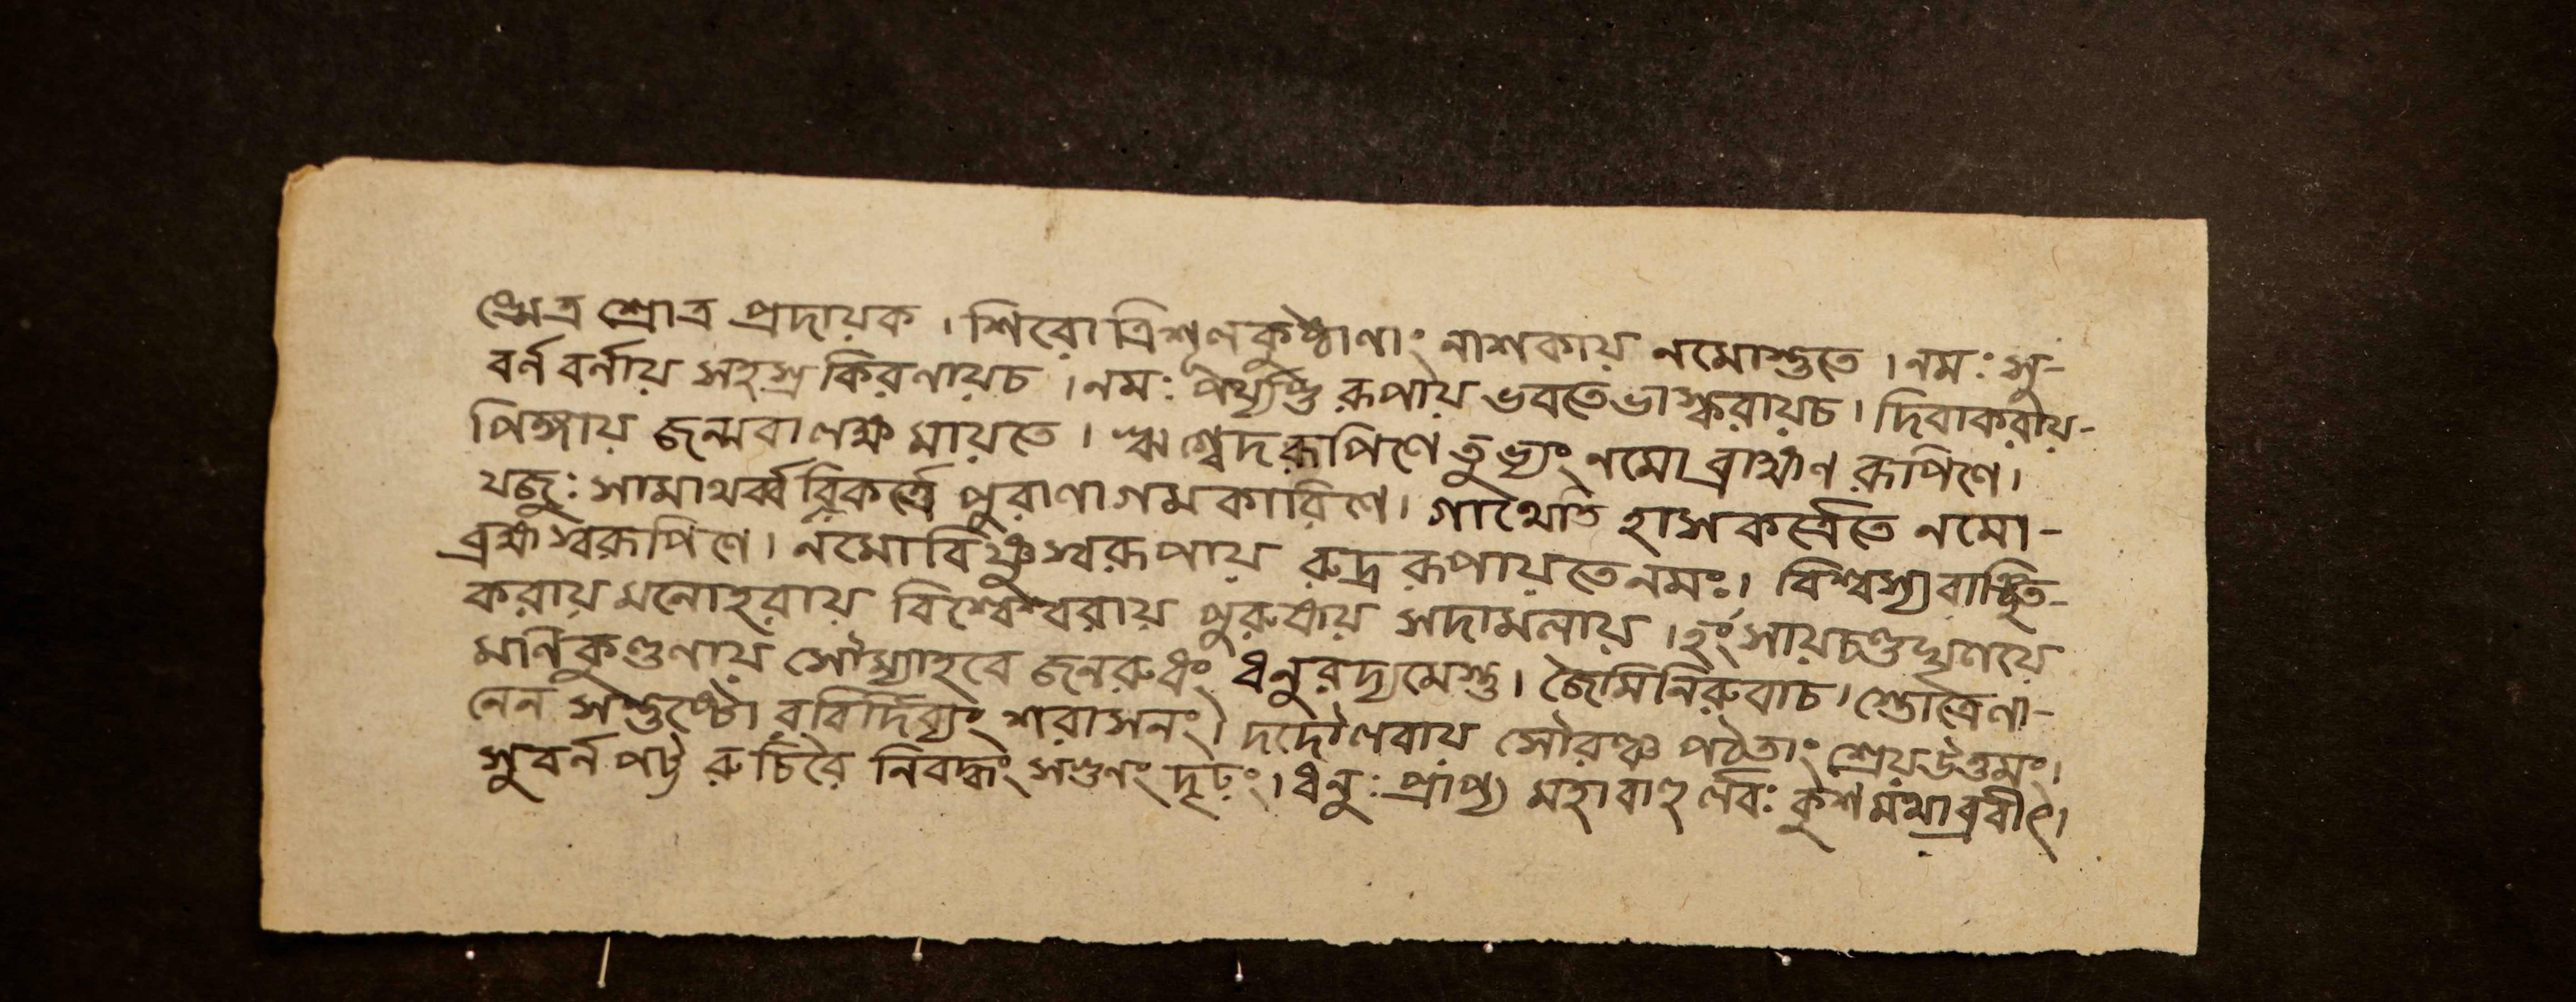 ণ্নেত্র শ্রোত্র প্রদায়ক । শিরো ত্রিশূলকুষ্ঠানাং নাশকায় নমোস্তুতে । নমঃ সু-
বর্ন বর্নায় সহস্র কিরনায়চ । নমঃ রূপায় ভবতেভাস্করায়চ । দিবাকরায়-
পিঙ্গায় জন্মবালক্ষ মায়তে । ঋগ্বেদরূপিণে তুভ্যং নমো ব্রাহ্মণ রূপিণে ।
যজুঃ সামাথর্ব্ব বিকর্ত্ত্রে পুরাণাগমকারিণে । গাথেতি হাসকর্ত্রেতে নমো-
ব্রহ্মস্বরূপিণে । নমোবিষ্ণুস্বরূপায় রুদ্র রূপায়তেনমঃ । বিশ্বস্যবাঞ্ছিত-
করায় মনোহরায় বিশ্বেশ্বরায় পুরুষায় সদামলায় ।
মানিকুণ্ডলায় সৌম্যাহবে জনরুধং ধনুরদ্যমেস্তু । জৈমিনিরুবাচ । স্তোত্রেনা-
নেন সন্তুষ্টো রবির্দিব্যং শরাসনং । দদৌলবায় সৌরঞ্চ পঠতাং শ্রেয়উত্তমং ।
সুবর্ন পট্ট রুচিরৈ নিবদ্ধং সগুনং দৃঢ়ং । ধনুঃ প্রাপ্য মহাবাহু র্লবঃ কুশমথাব্রবীৎ ।